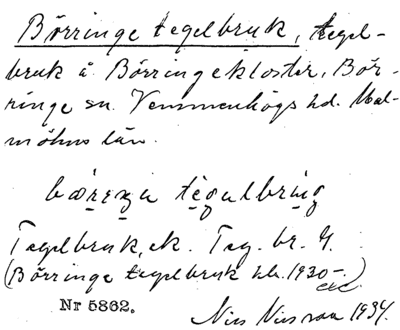 Börringe tegelbruk, tegel-
bruk å Börringekloster, Bör-
ringe sn. Vemmenhögs hd. Mal-
möhus län.
tegalbrug
Tegelbruk, ek. Teg. br. 4.
(Börringe tegelbruk hb. 1930-.)
Nr 5862.
Nils Nilsson 1934.